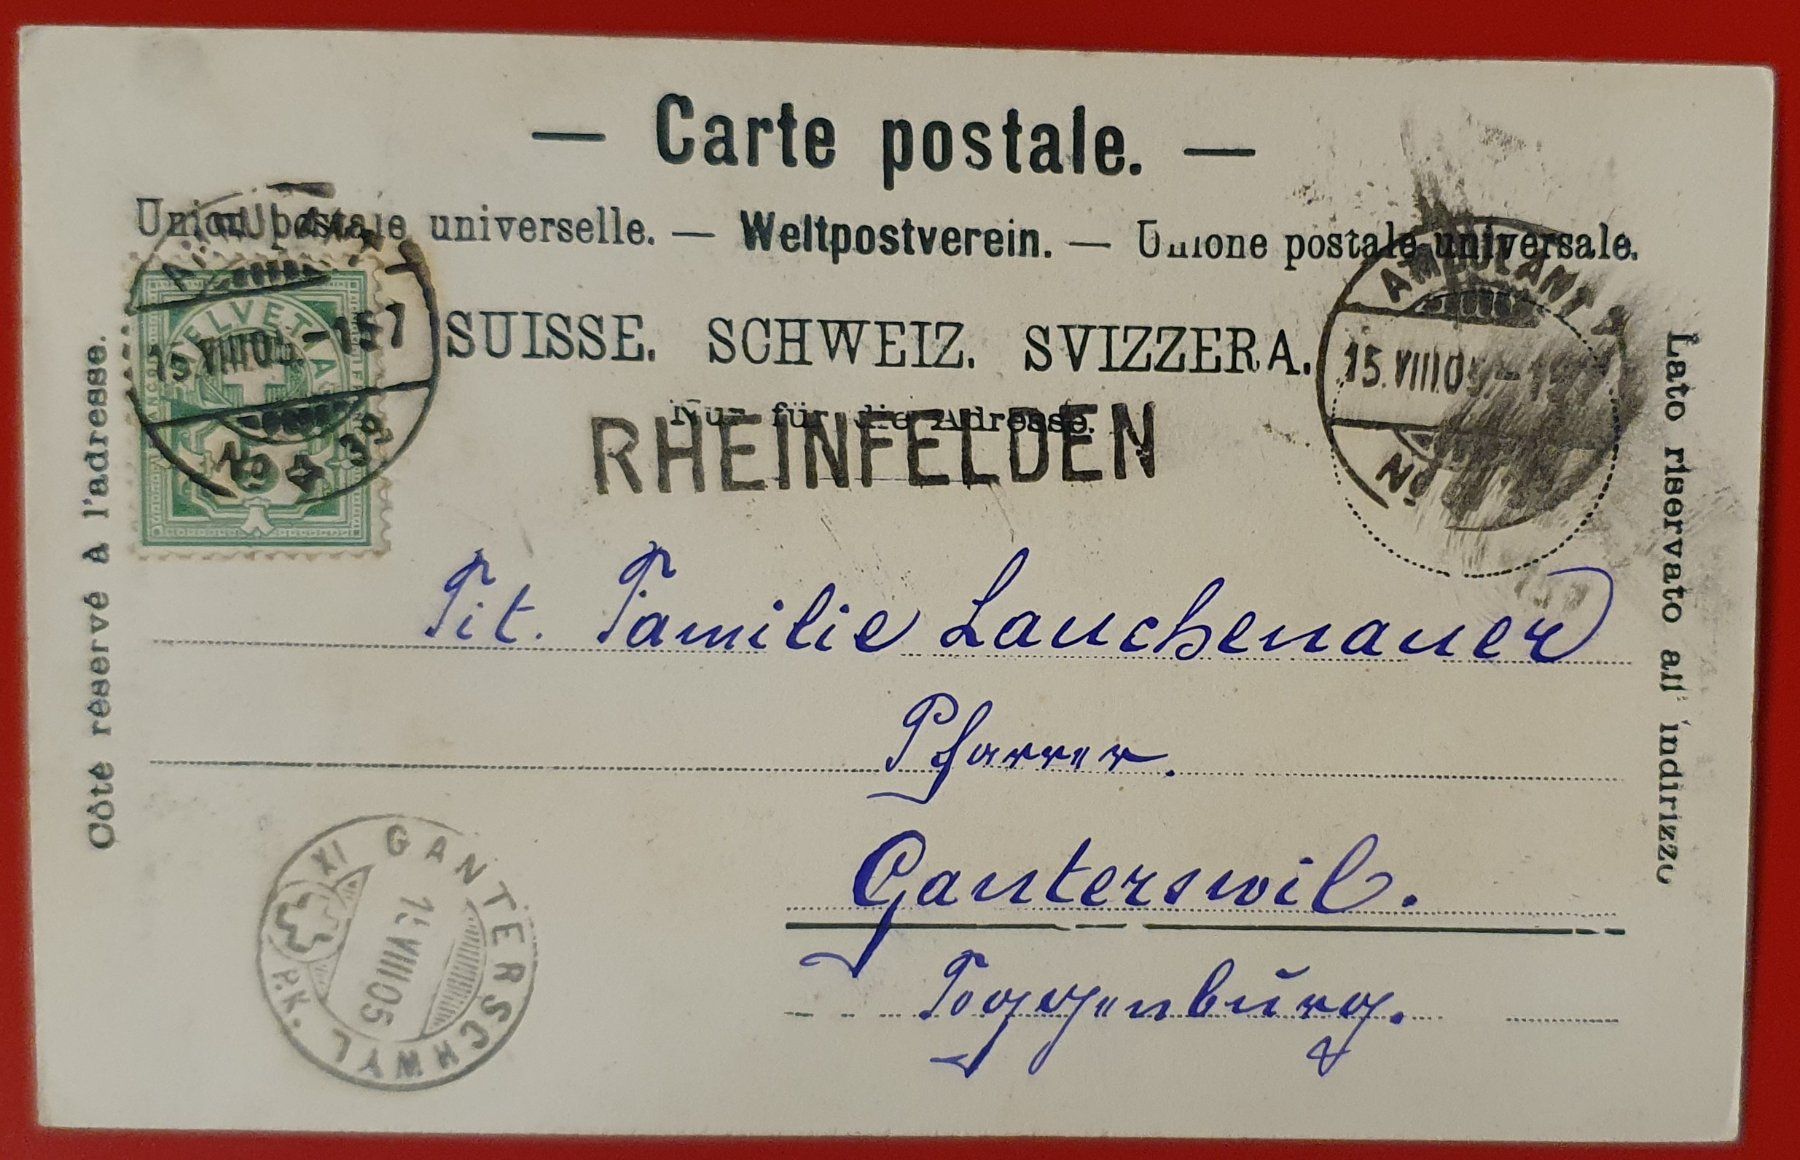 — Carte postale. —
Union postale universelle. — Weltpostverein. — Unione postale universale.
SUISSE. SCHWEIZ. SVIZZERA.
Nur für die Adresse.
RHEINFELDEN
Côté réservé à l'adresse.
Lato riservato all' indirizzo
HELVETIA
FRANCO
AMBULANT
15.VIII.05 - 157
No 38
AMBULANT
15.VIII.05
No
Tit. Familie Lauchenauer
Pfarrer.
Ganterswil.
Toggenburg.
GANTERSCHWYL
XI
VIII 05